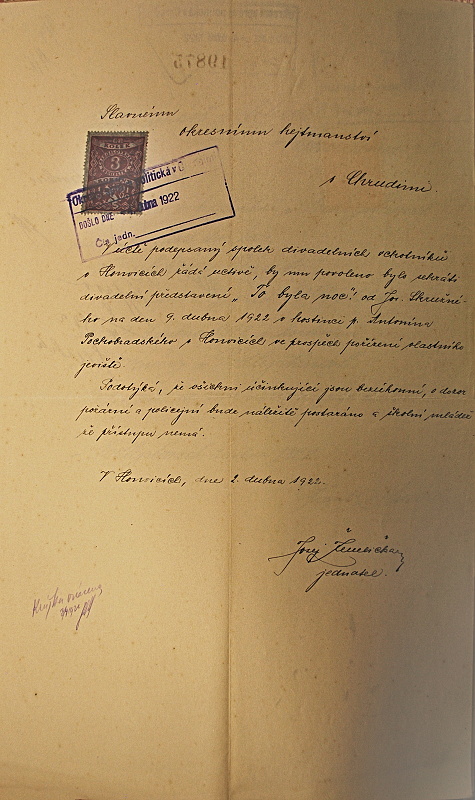 Slavnému
okresnímu hejtmanství
v Chrudimi.
KOLEK
3
Okr politická v
DOŠLO DNE dubna 1922
Čís. jedn.
V úctě podepsaný spolek divadelních ochotníků
v Honvicích žádá uctivě, by mu povoleno bylo sehráti
divadelní představení „To byla noc!" od Jos. Skružné-
ho na den 9. dubna 1922 v hostinci p. Antonína
Pochobradského v Honvicích ve prospěch pořízení vlastního
jeviště.
Podotýká, že všichni účinkující jsou bezúhonní, o dozor
požární a policejní bude náležitě postaráno a školní mládež
že přístupu nemá.
V Honvicích, dne 2. dubna 1922.
Josef
jednatel.
19875